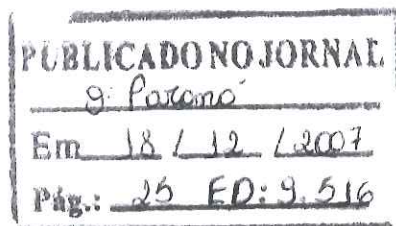 PUBLICADO NO JORNAL
O Paraná
Em 18 / 12 / 2007
Pág.: 25 ED: 9.516